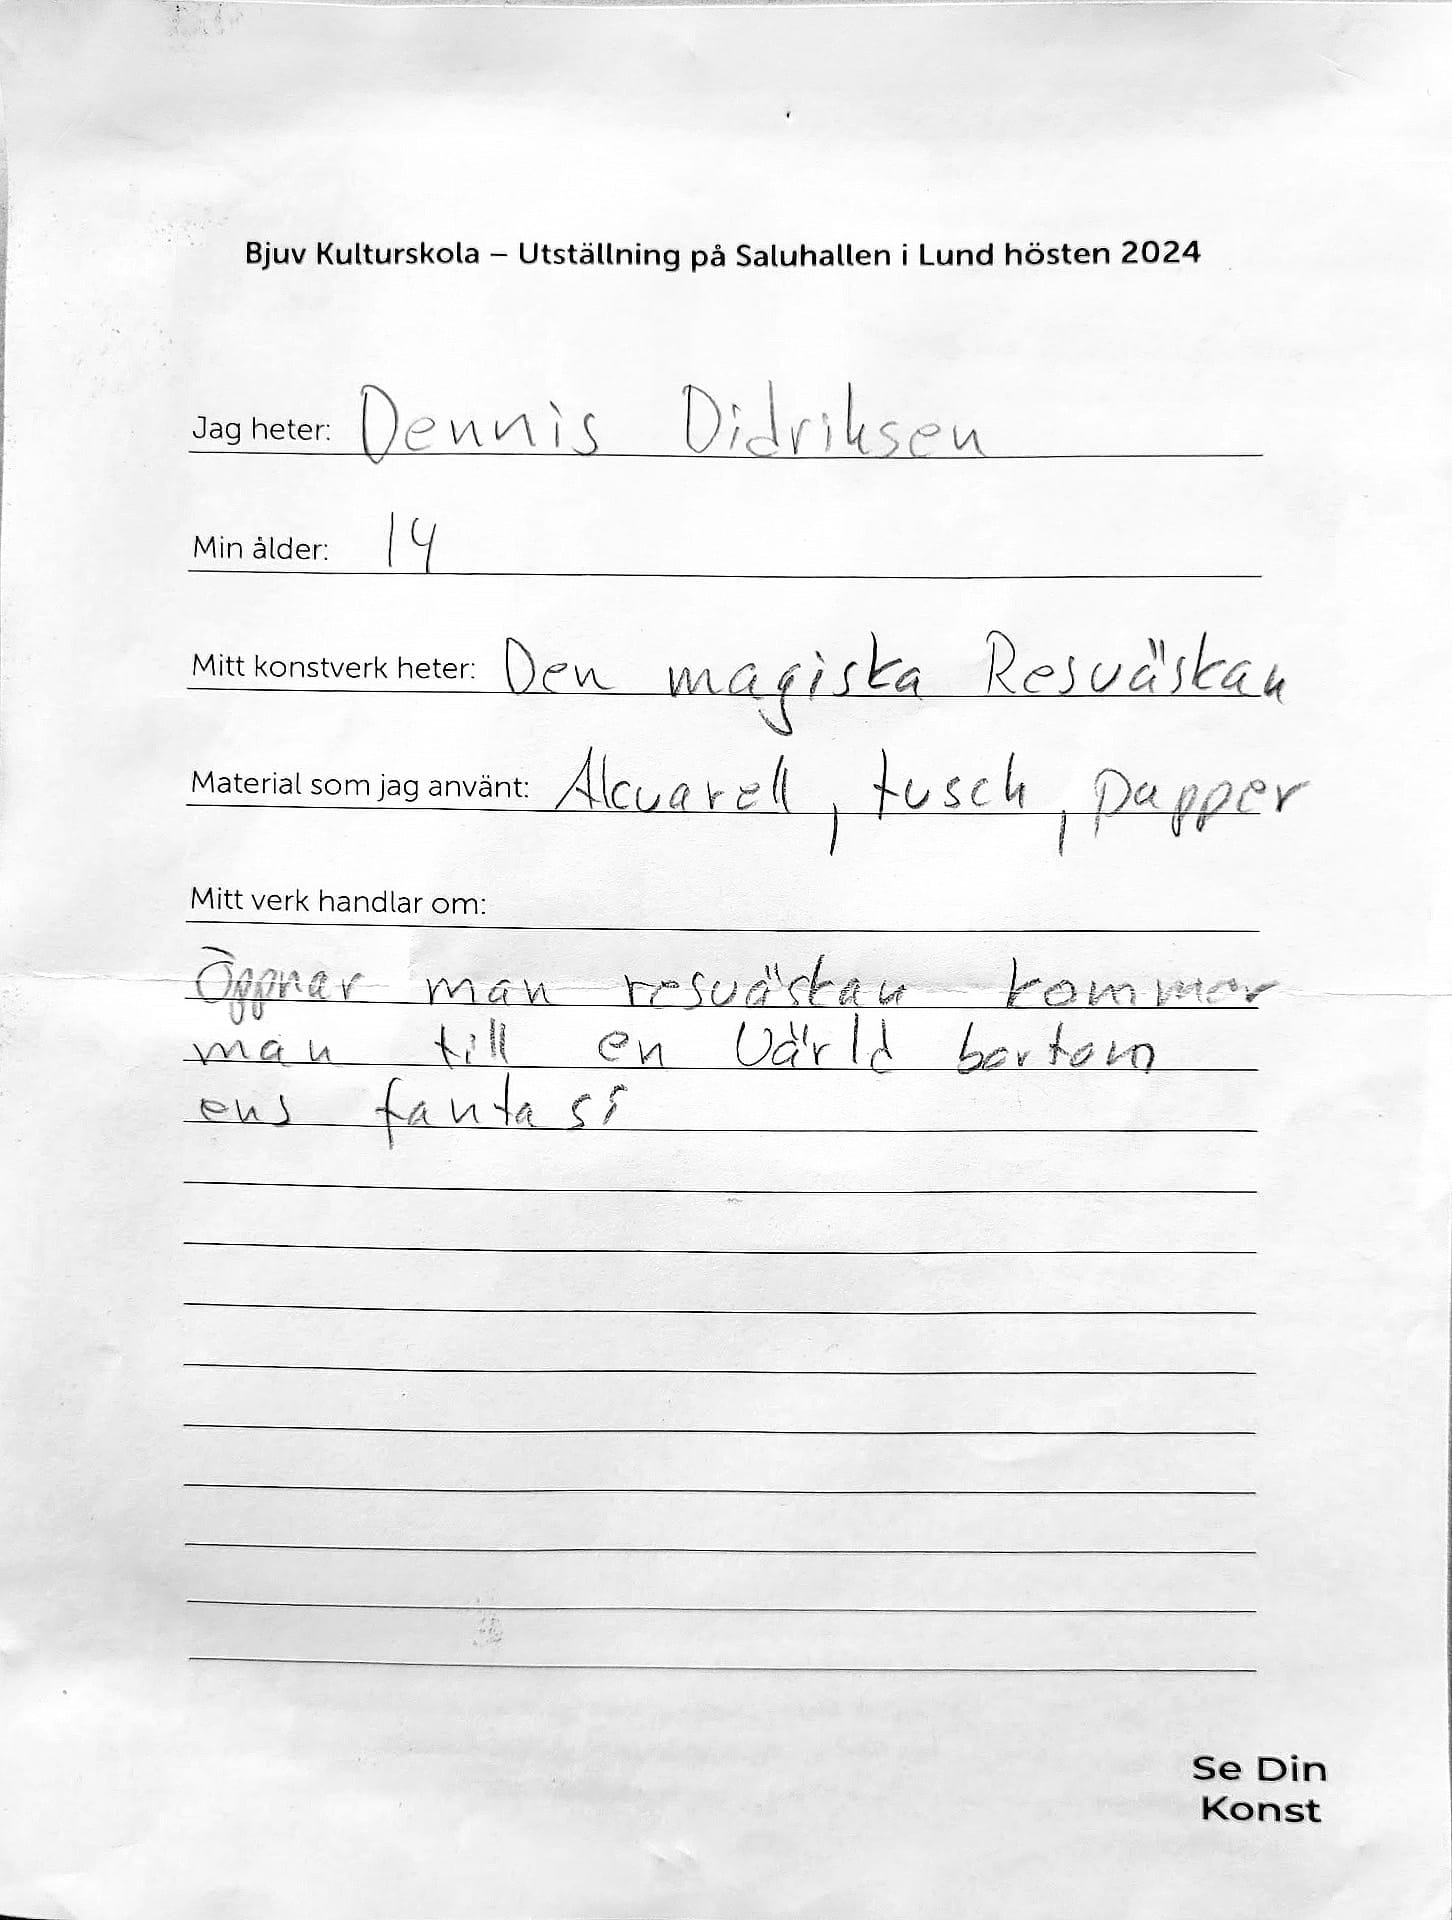 Bjuv Kulturskola – Utställning på Saluhallen i Lund hösten 2024
Jag heter: Dennis Didriksen
Min ålder: 14
Mitt konstverk heter: Den magiska Resväskan
Material som jag använt: Akvarell, tusch, papper
Mitt verk handlar om:
Öppnar man resväskan kommer
man till en värld bortom
ens fantasi
Se Din
Konst